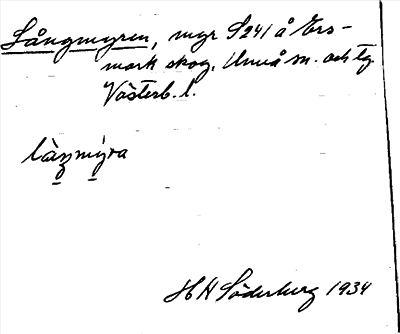 Långmyren, myr S241 å Ers-
mark skog, Umeå sn. och tg.
Västerb. l.
làŋmýra
H H Söderberg 1934